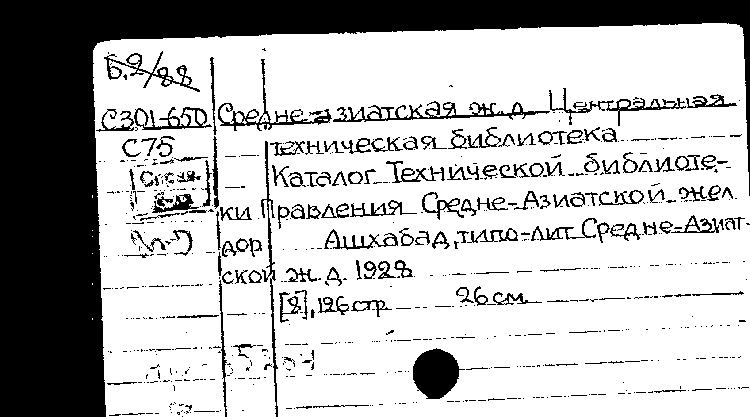 Б.9/88
С301-650 Средне-азиатская ж.д. Центральная
С75 техническая библиотека
Каталог Технической библиоте-
ки Правления Средне-Азиатской жел
дор Ашхабад, типо-лит Средне-Азиат-
ской ж.д. 1928
[8], 126 стр 26 см